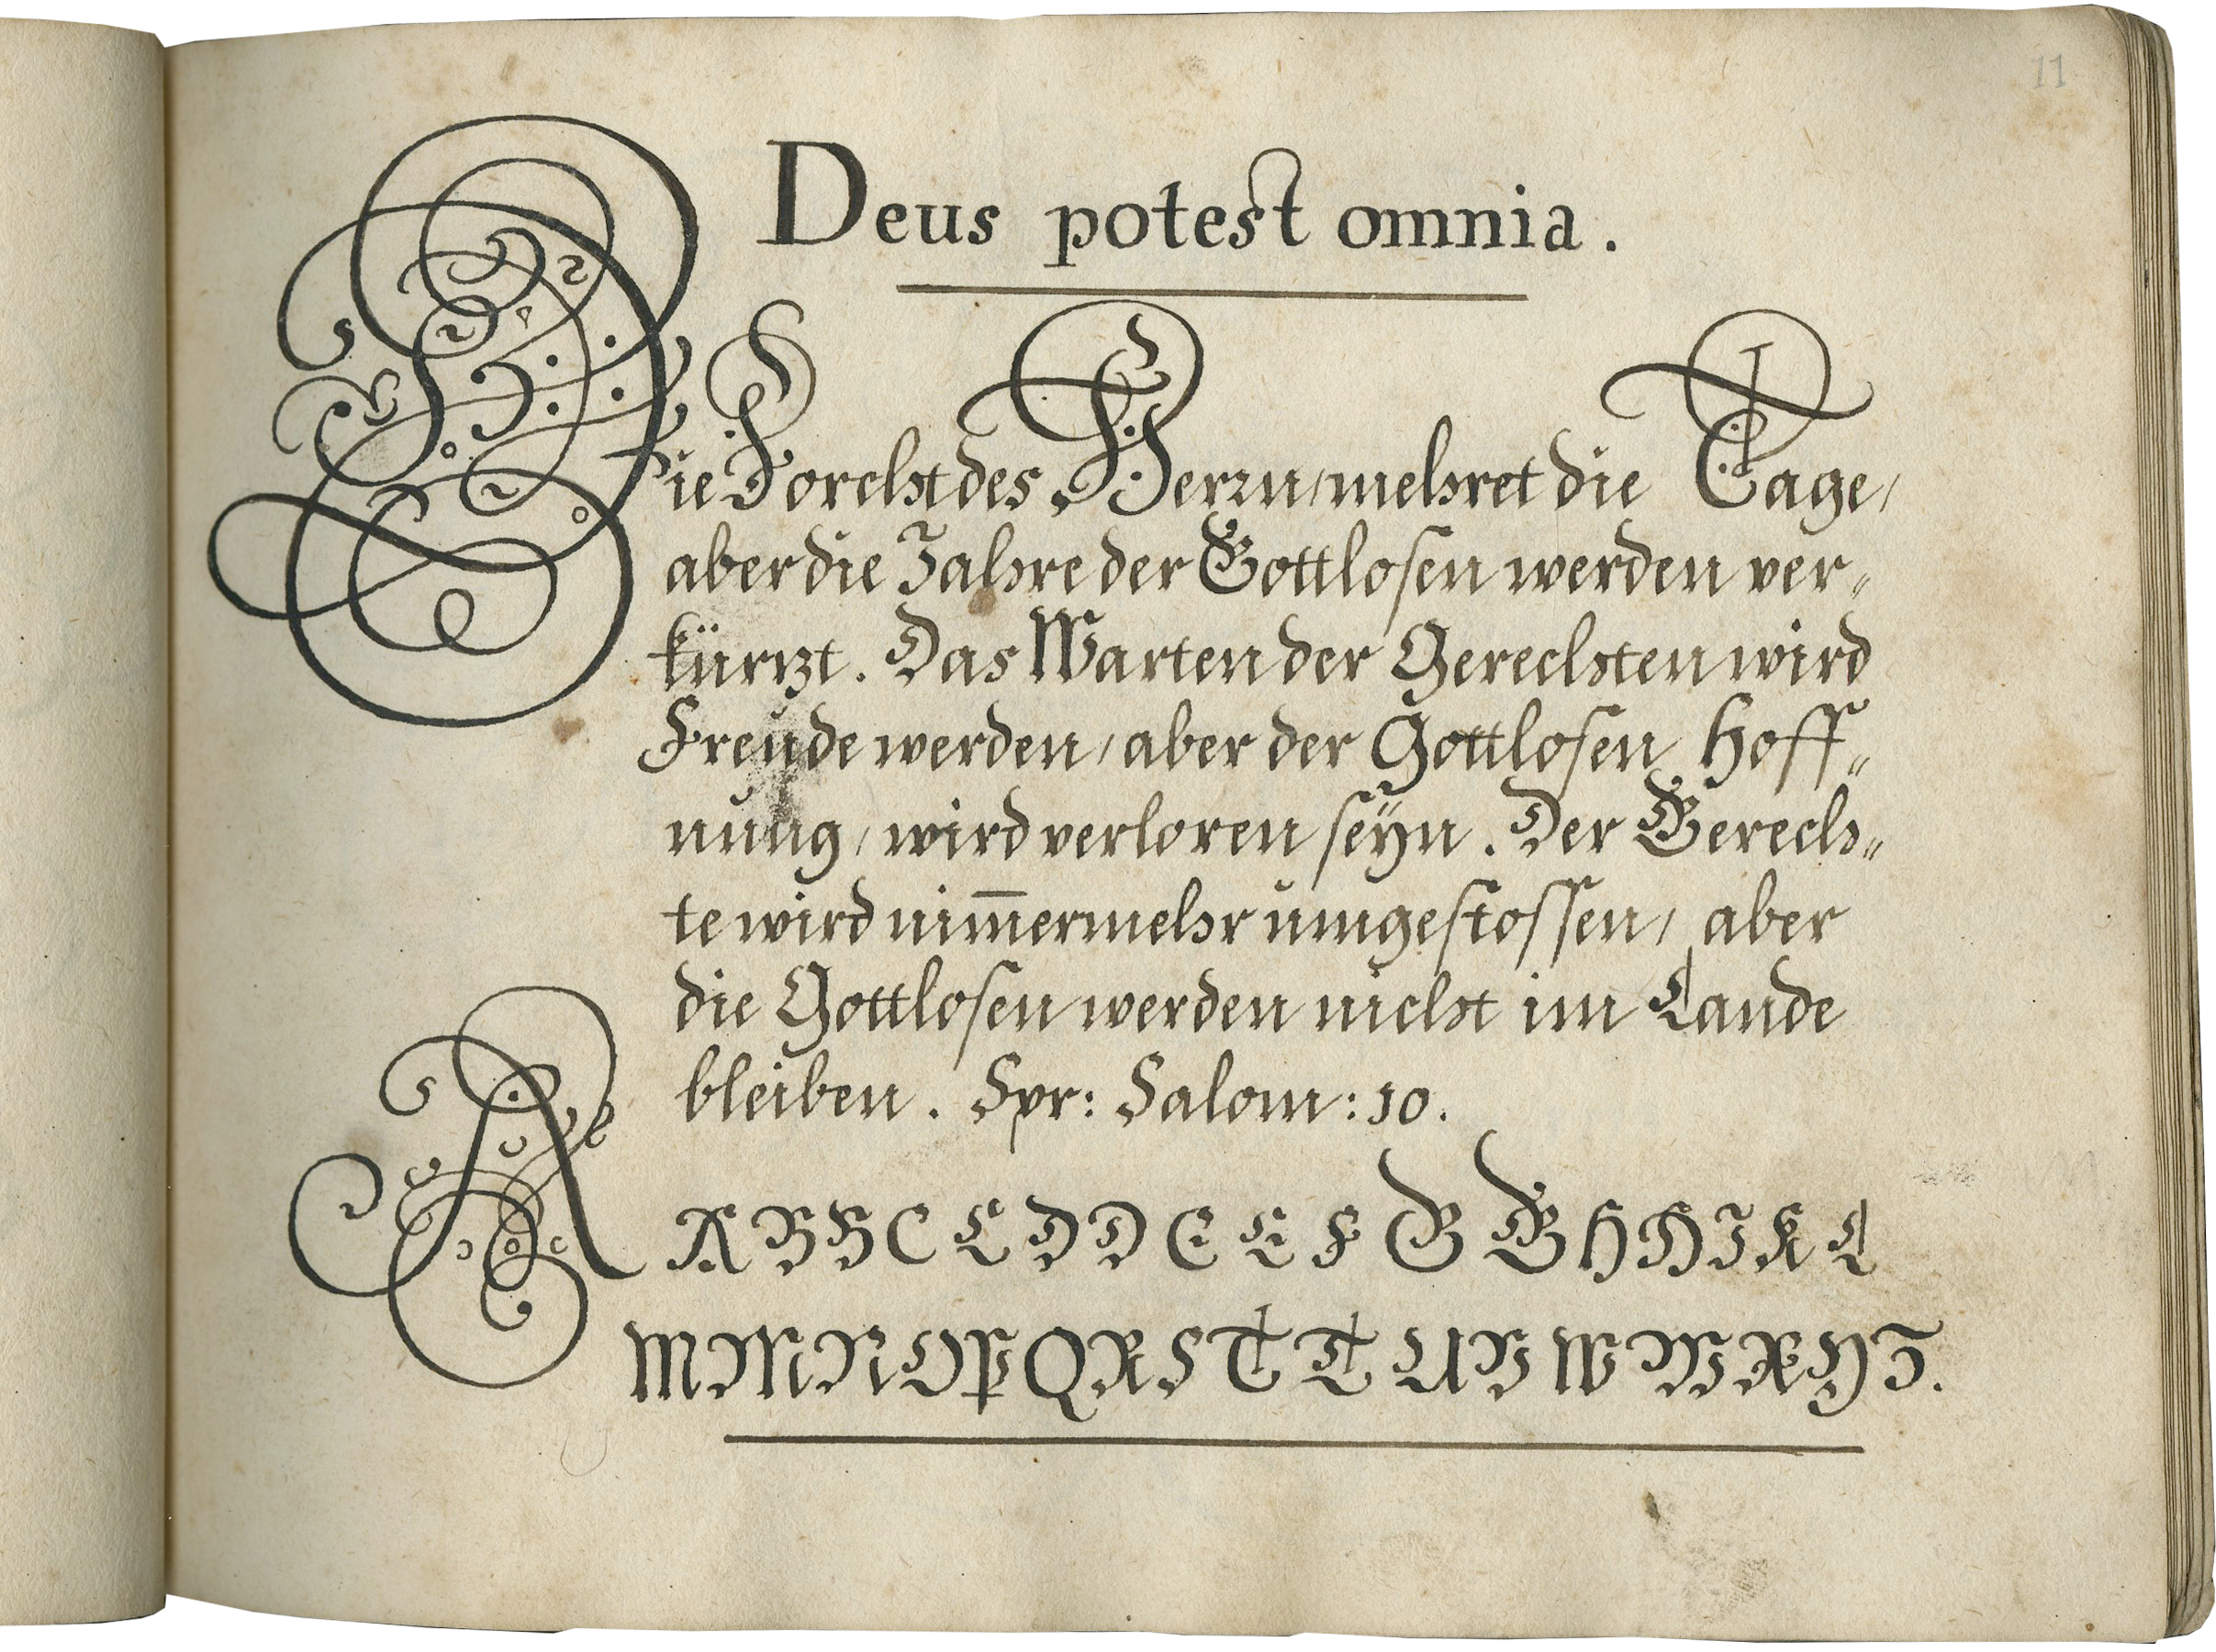 11
Deus potest omnia.
Die Forcht des Herrn / mehret die Tage /
aber die Jahre der Gottlosen werden ver„
kürtzt. Das Warten der Gerechten wird
Freüde werden / aber der Gottlosen Hoff„
nung / wird verloren seÿn. Der Gerech„
te wird nim̅ermehr umgestossen / aber
die Gottlosen werden nicht im Lande
bleiben. Spr: Salom: 10.
A A B B C C D D E E F G G H H I K L
M M N O P Q R S T T U V W W X Y Z.